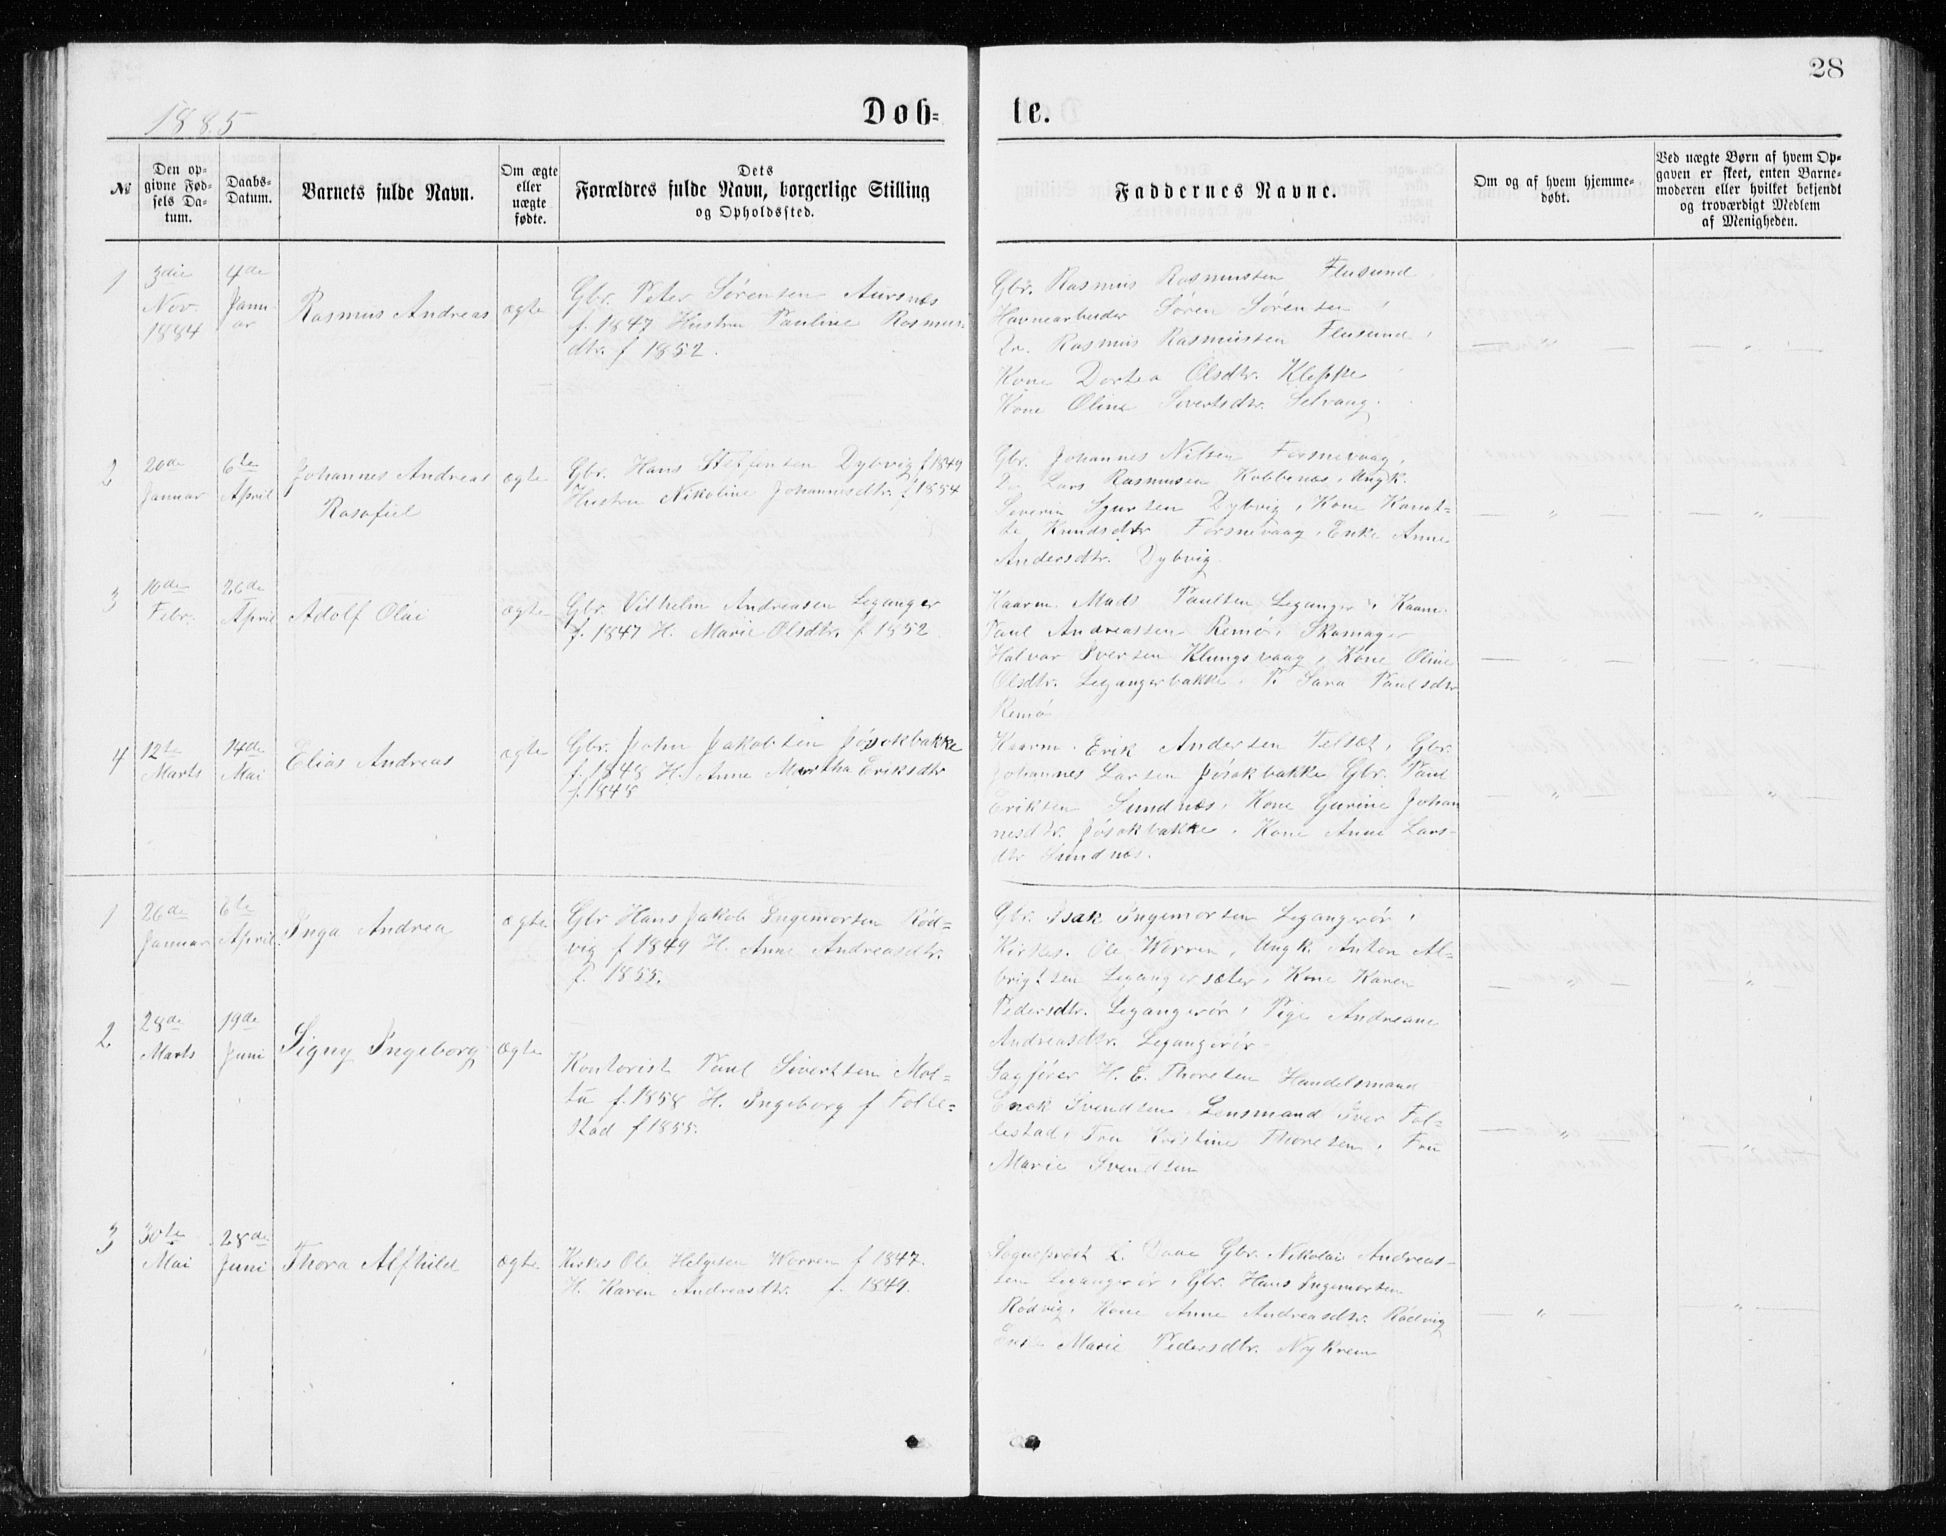 28
1885
Døb=
te.
№
Den op=
givne Fød=
sels Da=
tum.
Daabs=
Datum.
Barnets fulde Navn.
Om ægte
eller
uægte
fødte.
Dets
Forældres fulde Navn, borgerlige Stilling
og Opholdssted.
Faddernes Navne.
Om og af hvem hjemme=
døbt.
Ved uægte Børn af hvem Op=
gaven er skeet, enten Barne=
moderen eller hvilket bekjendt
og troværdigt Medlem
af Menigheden.
1
3die
Nov.
1884
4de
Janu-
ar
Rasmus Andreas
ægte
Gbr. Peter Sørensen Aursnes
f. 1847 Hustru Pauline Rasmus-
dtr. f 1852.
Gbr. Rasmus Rasmussen Flusund,
Havnearbeider Søren Sørensen,
Do. Rasmus Rasmussen Flusund,
Kone Dortea Olsdtr. Kleppe
Kone Oline Sivertsdtr. Selvaag.
— „ —
— „ —
2
20de
Januar
6te
April
Johannes Andreas
ægte
Gbr. Hans Steffensen Dybvig f 1849
Hustru Nikoline Johannesdtr. f 1854
Gbr. Johannes Nilsen Forsnevaag,
Do. Lars Rasmusen Kobbenæs, Ungk.
Severin Dybvig, Kone
Knudsdtr Forsnevaag, Enke Anne
Andersdtr. Dybvig.
— „ —
— „
3
10de
Febr.
26de
April
Adolf Olai
ægte
Gbr. Vilhelm Andreasen Leganger
f. 1847 H. Marie Olsdtr. f 1852
Kaarm. Mads Paulsen Leganger, Kaarm.
Paul Andreassen Remø, Skomager
Halvar Iversen Klungsvaag, Kone Oline
Olsdtr. Legangerbakke, P. Sara Paulsdtr
Remø
— „ —
— „ —
4
12te
Marts
14de
Mai
Elias Andreas
ægte
Gbr. John Jakobsen Jøsokbakke
f. 1848 H. Anne Martha Eriksdtr
f. 1848
Kaarm. Erik Andersen, Gbr.
Johannes Larsen Jøsokbakke Gbr. Paul
Eriksen Sundnæs, Kone Gurine Johan
nesdtr. Jøsokbakke, Kone Anne Lars-
dtr Sundnæs.
— „ —
— „ —
1
26de
Januar
6te
April
Inga Andrea
ægte
Gbr Hans Jakob Ingemorsen Rød=
vig f 1849 H. Anne Andreasdtr.
f. 1855.
Gbr. Isak Ingemorsen Legangerør,
Kirkes. Ole Worren, Ungk. Anton Al=
brigtsen Legangersæter, Kone Karen
Pedersdtr. Legangerør, Pige Andreane
Andreasdtr. Legangerør.
— „ —
— „ —
2
28de
Marts
19de
Juni
Signy Ingeborg
ægte
Kontorist Paul Sivertsen Mol=
tu f. 1858 H. Ingeborg f Folle=
stad f 1855.
Sagfører H. E. Thoresen Handelsmand
Enok Svendsen Lensmand Iver Fol=
lestad, Fru Kristine Thoresen, Fru
Marie Svendsen
— „ —
— „ —
3
30te
Mai
28de
Juni
Thora Alfhild
ægte
Kirkes Ole Helgesen Worren f 1847.
H. Karen Andreasdtr. f. 1849.
Sogneprest L. Daae Gbr. Nikolai Andreas-
sen Legangerør, Gbr. Hans Ingemorsen
Rødvig, Kone Anne Andreasdtr. Rødvig
Enke Marie Pedersdtr. Nykrem
— „ —
„ —